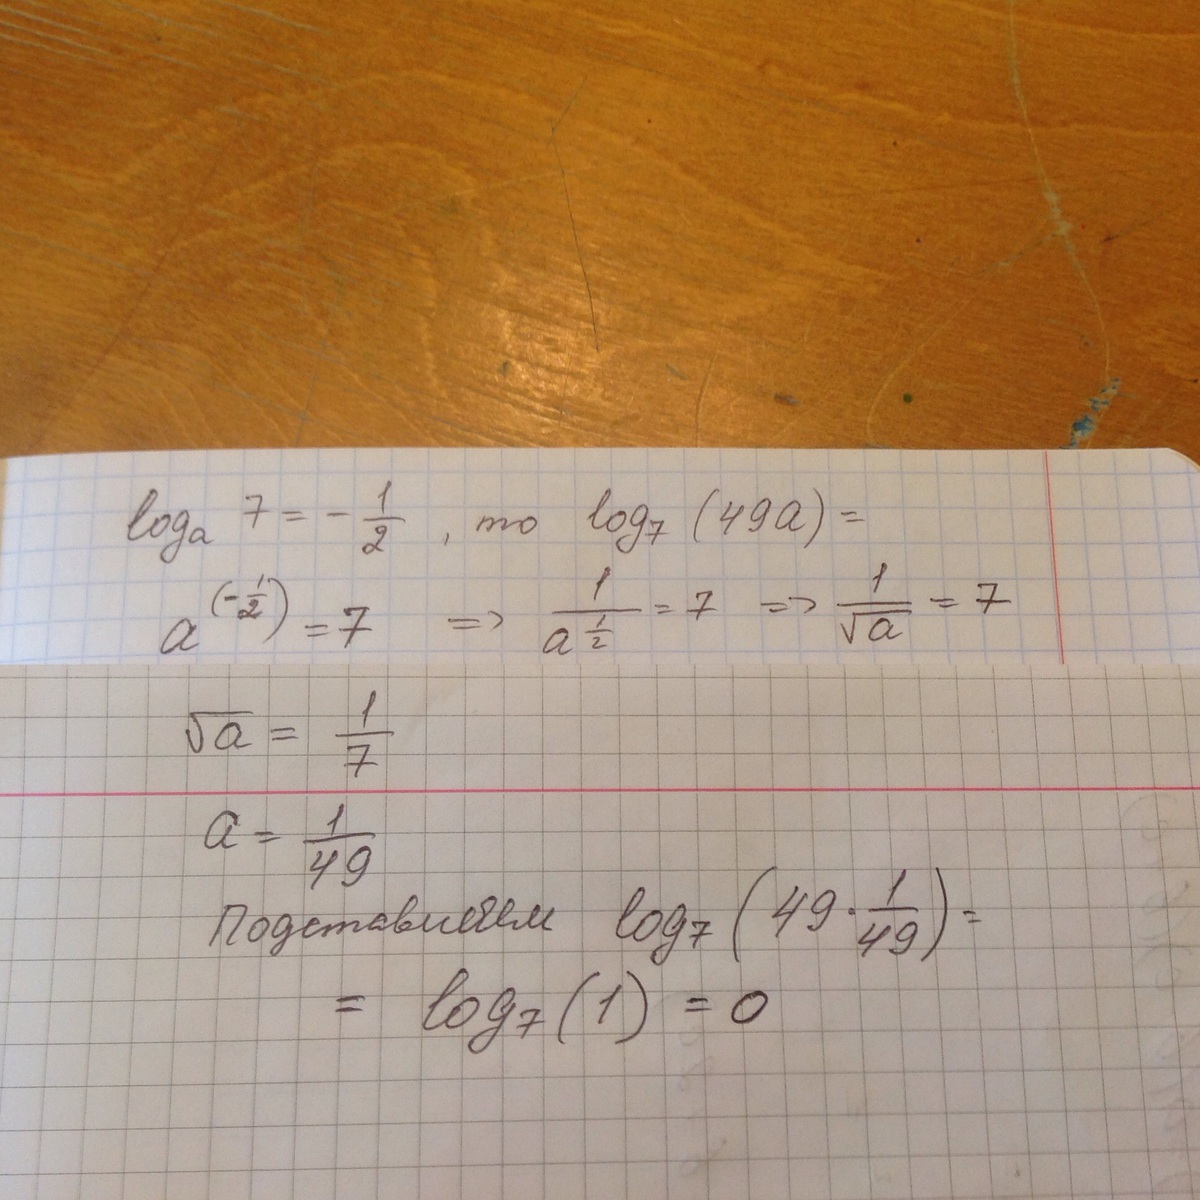 logₐ 7 = - 1/2 , то log₇ (49a) =
a^(-1/2) = 7 => 1/a^(1/2) = 7 => 1/√a = 7
√a = 1/7
a = 1/49
Подставляем log₇ (49 · 1/49) =
= log₇ (1) = 0